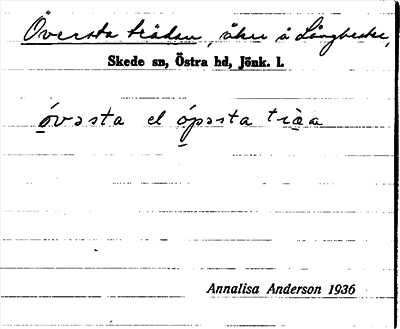 Översta trädan, åker å Långbacka,
Skede sn, Östra hd, Jönk. l.
óvəsta el ópəsta tràa
Annalisa Anderson 1936